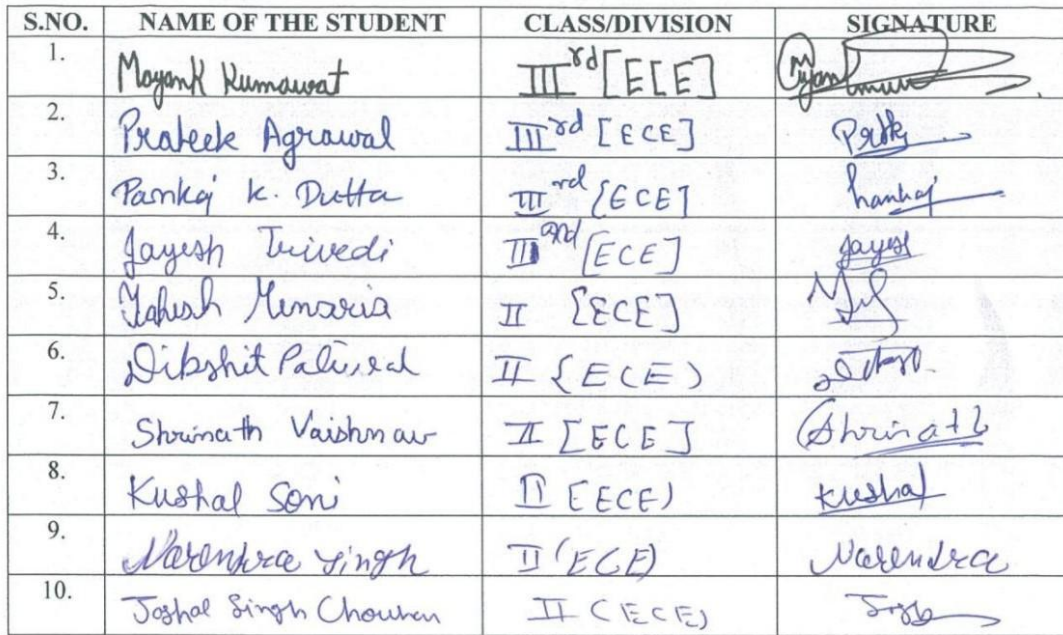 S.NO. NAME OF THE STUDENT CLASS/DIVISION SIGNATURE
1. Mayank Kumawat III rd [ECE]
2. Prateek Agrawal III rd [ECE]
3. Pankaj K. Dutta III rd {ECE]
4. Jayesh Trivedi [ECE] Jayesh
5. Menaria II [ECE]
6. Dikshit Paliwal II {ECE)
7. Shrinath Vaishnav II [ECE] Shrinath
8. Kushal Soni II [ECE) Kushal
9. Narendra Singh II (ECE) Narendra
10. Singh Chouhan II (ECE)